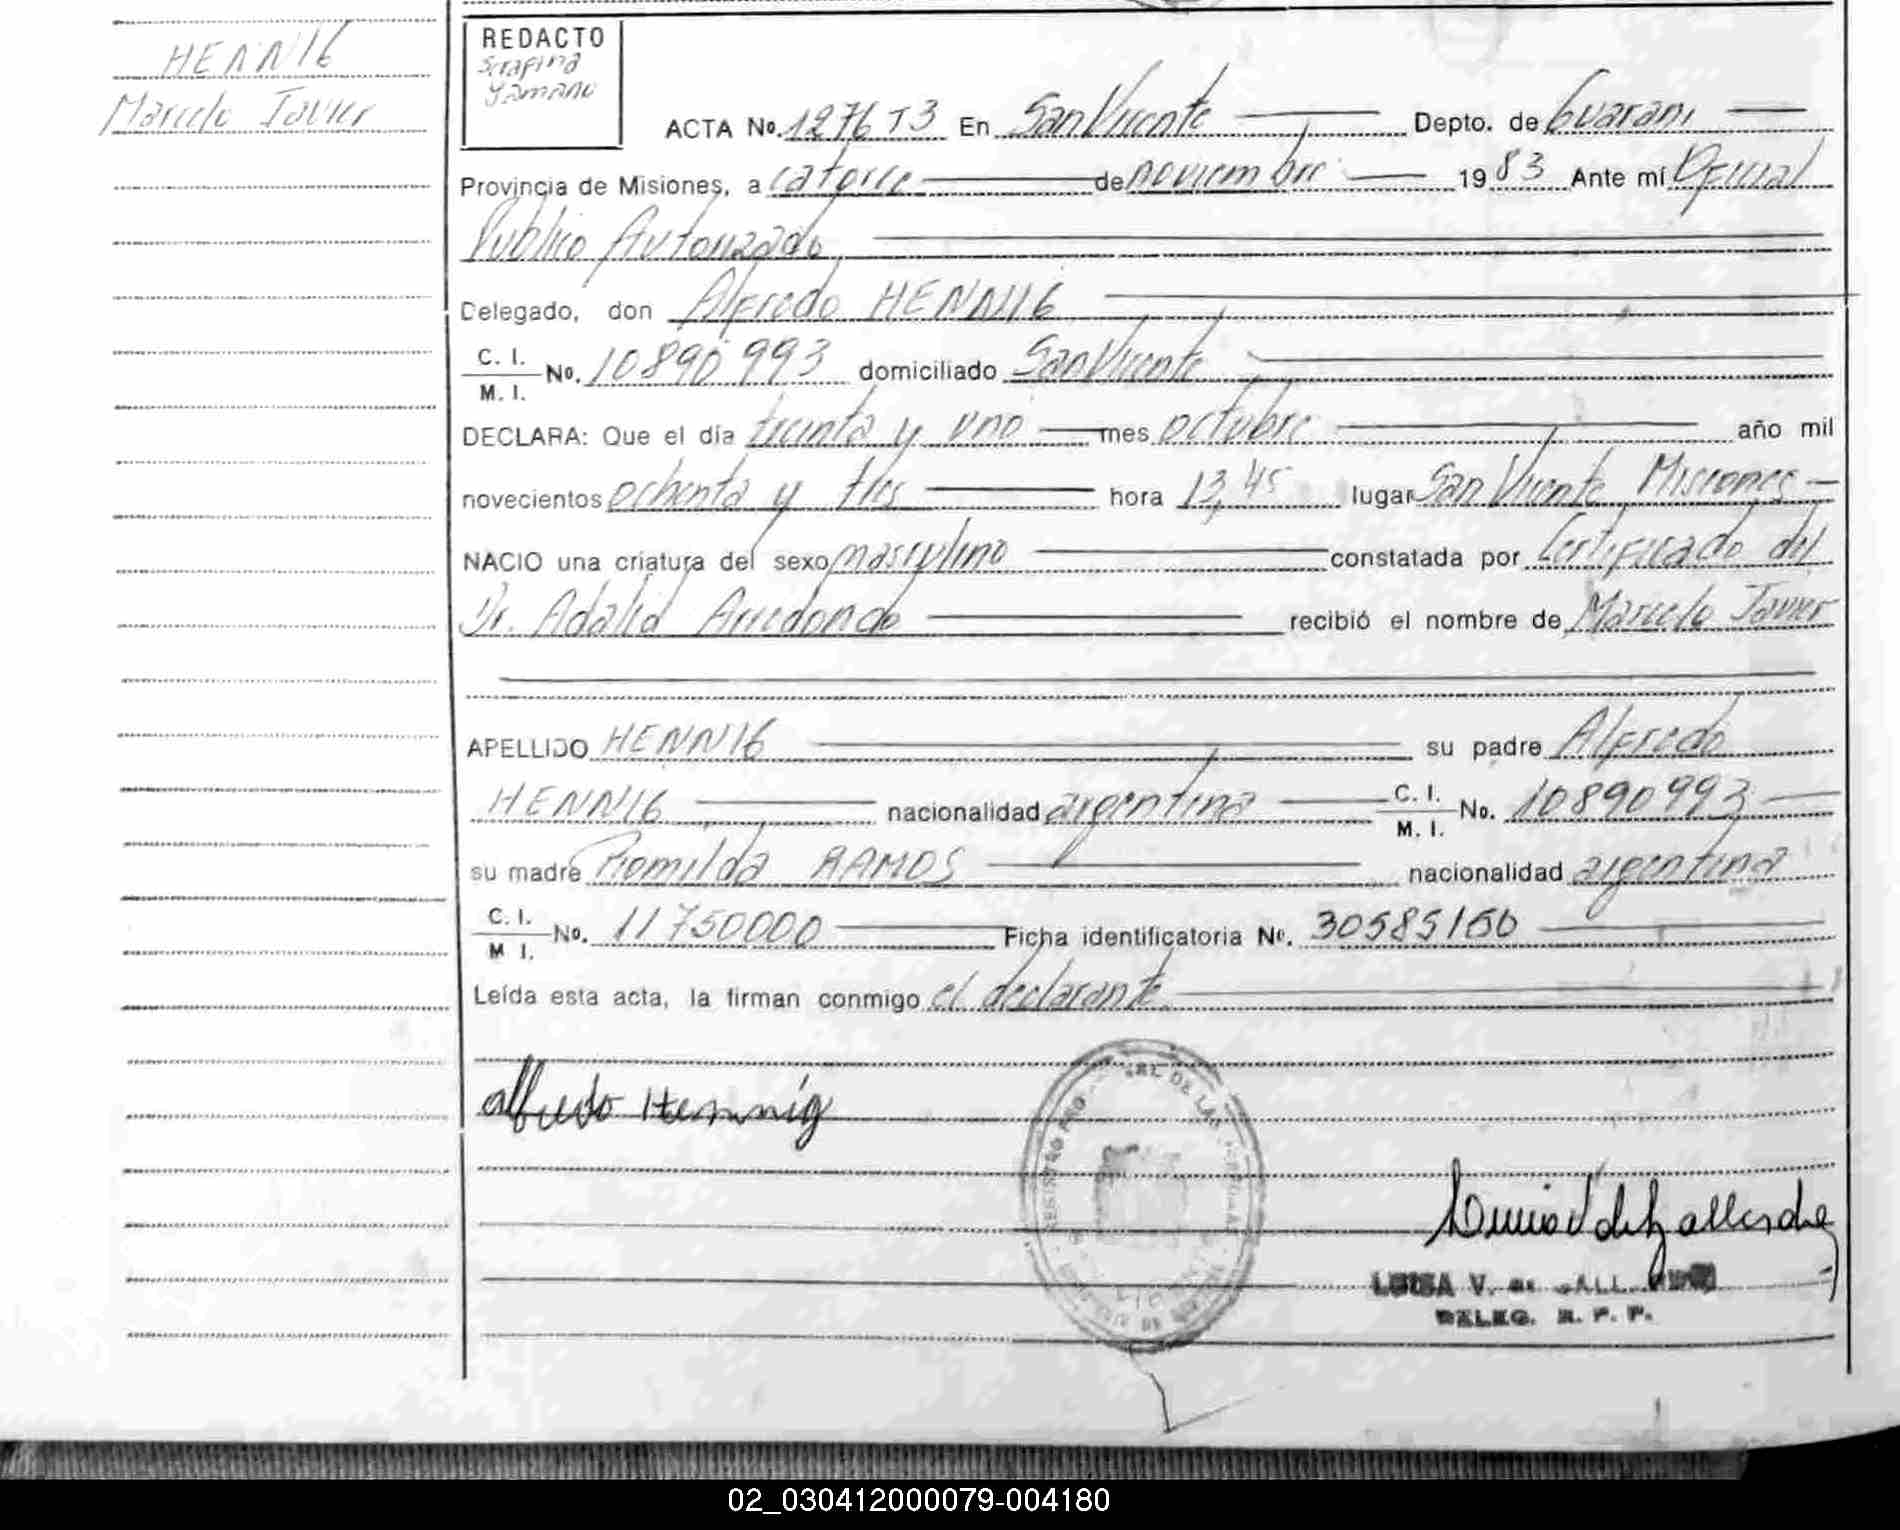 HENNIG
Marcelo Javier
REDACTO
Serafina
Yamano
ACTA No. 1276 T3 En San Vicente Depto. de Guarani
Provincia de Misiones, a catorce de noviembre 1983 Ante mí Oficial
Publico Autorizado
Delegado, don Alfredo HENNIG
C. I.
M. I. No. 10890993 domiciliado San Vicente
DECLARA: Que el día treinta y uno mes octubre año mil
novecientos ochenta y tres hora 13,45 lugar San Vicente Misiones
NACIO una criatura del sexo masculino constatada por Certificado del
Dr. Adalid Arredondo recibió el nombre de Marcelo Javier
APELLIDO HENNIG su padre Alfredo
HENNIG nacionalidad argentina C. I. M. I. No. 10890993
su madre Romilda RAMOS nacionalidad argentina
C. I.
M I. No. 11750000 Ficha identificatoria No. 30585160
Leída esta acta, la firman conmigo el declarante
Alfredo Hennig
LUISA V. de
DELEG. R. P. P.
02_030412000079-004180